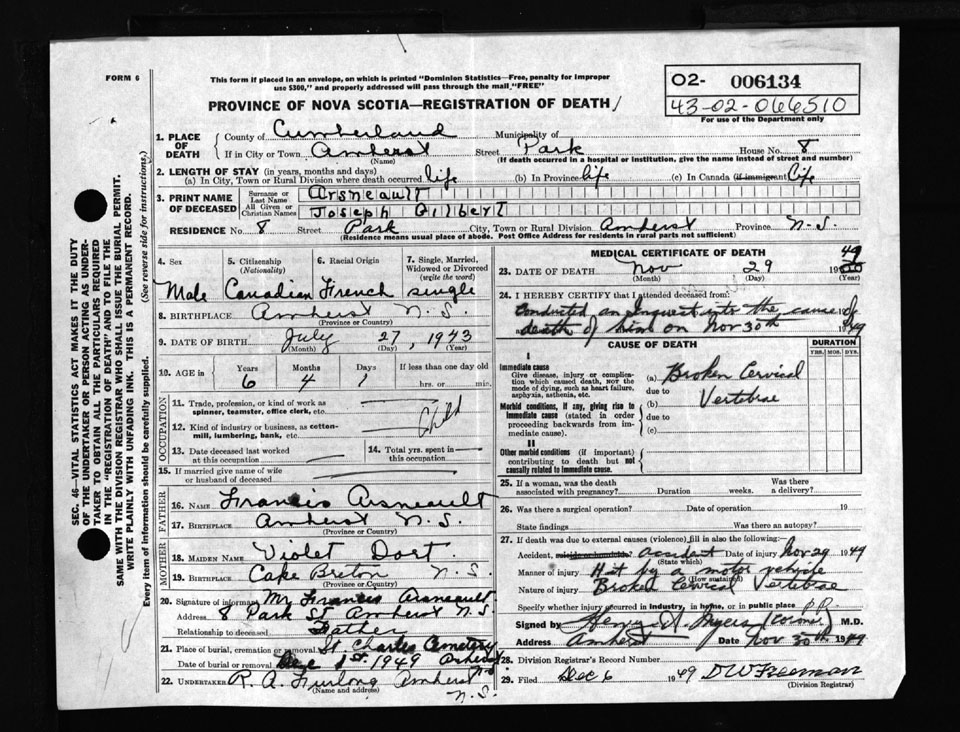 FORM 6
This form if placed in an envelope, on which is printed "Dominion Statistics—Free, penalty for improper
use $300," and properly addressed will pass through the mail "FREE"
PROVINCE OF NOVA SCOTIA—REGISTRATION OF DEATH
02- 006134
43-02-066510
For use of the Department only
1. PLACE OF DEATH
County of Cumberland Municipality of
If in City or Town Amherst Street Park House No. 8
(Name) (If death occurred in a hospital or institution, give the name instead of street and number)
2. LENGTH OF STAY (in years, months and days)
(a) In City, Town or Rural Division where death occurred life (b) In Province life (c) In Canada (if immigrant) Life
3. PRINT NAME OF DECEASED
Surname or Last Name Arsneault
All Given or Christian Names Joseph Gilbert
RESIDENCE No. 8 Street Park City, Town or Rural Division Amherst Province N.S.
(Residence means usual place of abode. Post Office Address for residents in rural parts not sufficient)
4. Sex 5. Citizenship (Nationality) 6. Racial Origin 7. Single, Married, Widowed or Divorced (write the word)
Male Canadian French single
8. BIRTHPLACE Amherst N.S.
(Province or Country)
9. DATE OF BIRTH July 27, 1943
(Month) (Day) (Year)
10. AGE in Years Months Days If less than one day old
6 4 1 hrs. or min.
OCCUPATION
11. Trade, profession, or kind of work as spinner, teamster, office clerk, etc.
12. Kind of industry or business, as cotton-mill, lumbering, bank, etc. Child
13. Date deceased last worked at this occupation
14. Total yrs. spent in this occupation
15. If married give name of wife or husband of deceased
FATHER
16. NAME Francis Arsneault
17. BIRTHPLACE Amherst N.S.
(Province or Country)
MOTHER
18. MAIDEN NAME Violet Dort.
19. BIRTHPLACE Cape Breton N.S
(Province or Country)
20. Signature of informant Mr Francis Arsneault
Address 8 Park St Amherst N.S.
Relationship to deceased Father
21. Place of burial, cremation or removal St. Charles Cemetery
Date of burial or removal Dec 1st. 1949 Amherst N.S
22. UNDERTAKER R. A. Furlong Amherst N.S.
(Name and address)
MEDICAL CERTIFICATE OF DEATH
23. DATE OF DEATH Nov 29 1949
(Month) (Day)
24. I HEREBY CERTIFY that I attended deceased from:
Conducted an Inquest into the cause of
death of him on Nov 30th 1949
CAUSE OF DEATH
DURATION
YRS. MOS. DYS.
I
Immediate cause
Give disease, injury or complication which caused death, NOT the mode of dying, such as heart failure, asphyxia, asthenia, etc.
(a) Broken Cervical
due to
Morbid conditions, if any, giving rise to immediate cause (stated in order proceeding backwards from immediate cause).
(b) Vertebrae
due to
(c)
II
Other morbid conditions (if important) contributing to death but not causally related to immediate cause.
25. If a woman, was the death associated with pregnancy? Duration weeks. Was there a delivery?
26. Was there a surgical operation? Date of operation 19
State findings Was there an autopsy?
27. If death was due to external causes (violence) fill in also the following:
Accident, suicide or homicide? accident Date of injury Nov 29 1949
(State which)
Manner of injury Hit by a motor vehicle
(How sustained)
Nature of injury Broken Cervical Vertebrae
Specify whether injury occurred in industry, in home, or in public place P.P.
Signed by Henry A. Myers (Coroner) M.D.
Address Amherst Date Nov 30th 1949
28. Division Registrar's Record Number
29. Filed Dec 6 1949 DW Freeman
(Division Registrar)
SEC. 46—VITAL STATISTICS ACT MAKES IT THE DUTY
OF THE UNDERTAKER OR PERSON ACTING AS UNDER-
TAKER TO OBTAIN ALL THE PARTICULARS REQUIRED
IN THE "REGISTRATION OF DEATH" AND TO FILE THE
SAME WITH THE DIVISION REGISTRAR WHO SHALL ISSUE THE BURIAL PERMIT.
WRITE PLAINLY WITH UNFADING INK. THIS IS A PERMANENT RECORD.
Every item of information should be carefully supplied. (See reverse side for instructions.)